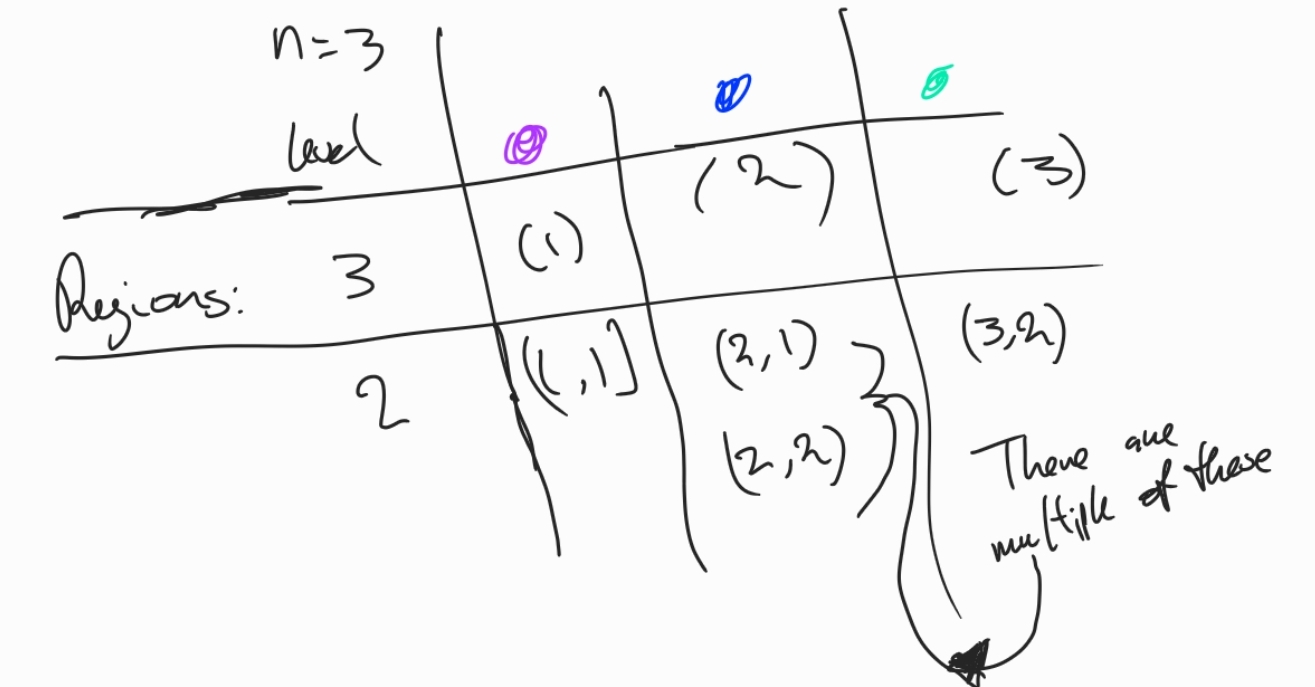 n=3
level
(1) (2) (3)
Regions: 3
2 (1,1] (2,1) (3,2)
(2,2)
There are
multiple of these